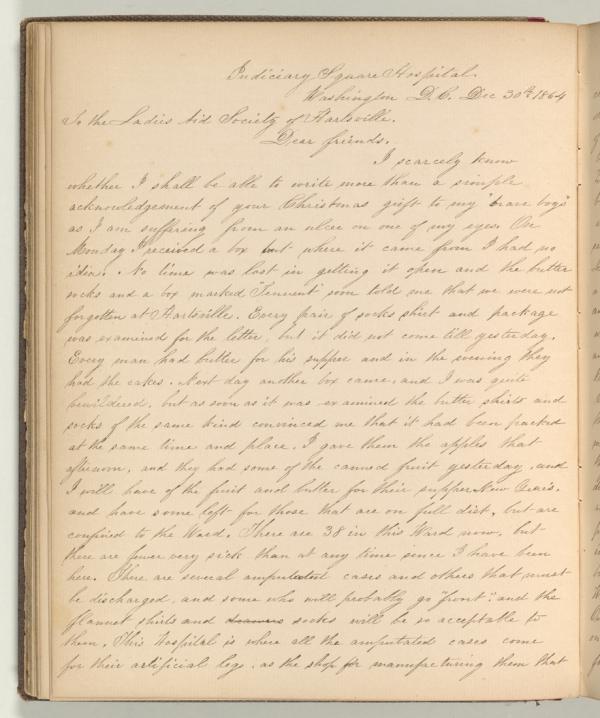 Judiciary Square Hospital.
Washington D.C. Dec 30th 1864
To the Ladies Aid Society of Hartsville.
Dear friends.
I scarcely know
whether I shall be able to write more than a simple
acknowledgement of your Christmas gift to my "brave boys"
as I am suffering from an ulcer on one of my eyes. On
Monday I received a box but where it came from I had no
idea. No time was lost in getting it open and the butter
socks and a box marked "Tennent" soon told me that we were not
forgotten at Hartsville. Every pair of socks shirt and package
was examined for the letter, but it did not come till yesterday.
Every man had butter for his supper and in the evening they
had the cakes. Next day another box came, and I was quite
bewildered, but as soon as it was examined the butter shirts and
socks of the same kind convinced me that it had been packed
at the same time and place. I gave them the apples that
afternoon, and they had some of the canned fruit yesterday, and
I will have of the fruit and butter for their supper New Years.
and have some left for those that are on full diet, but are
confined to the Ward. There are 38 in this Ward now, but
there are fewer very sick than at any time since I have been
here. There are several amputated cases and others that must
be discharged, and some who will probably go "front". and the
flannel shirts and drawers socks will be so acceptable to
them. This Hospital is where all the amputated cases come
for their artificial legs, as the shop for manufacturing them that